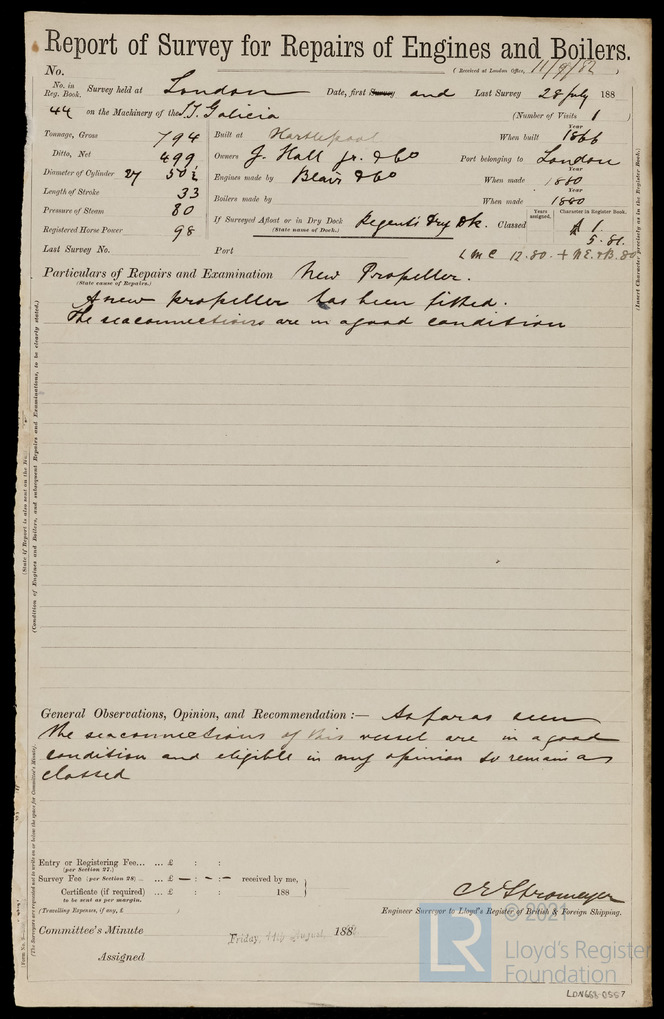 Report of Survey for Repairs of Engines and Boilers.
No. (Received at London Office, 11/9/82)
No. in Reg. Book. Survey held at London Date, first Survey and Last Survey 28 July 188
44 on the Machinery of the S.S. Galicia (Number of Visits 1)
Tonnage, Gross 794 Built at Hartlepool When built Year 1866
Ditto, Net 499 Owners J. Hall Jr. & Co Port belonging to London
Diameter of Cylinder 27 50½ Engines made by Blair & Co When made Year 1880
Length of Stroke 33 Boilers made by When made Year 1880
Pressure of Steam 80 If Surveyed Afloat or in Dry Dock Regents Dry Dk. Classed Years assigned. Character in Register Book. A 1.
(State name of Dock.)
Registered Horse Power 98 5.81.
Last Survey No. Port LMC 12.80. + N.E.&B. 80
Particulars of Repairs and Examination New Propeller.
(State cause of Repairs.)
A new propeller has been fitted.
The seaconnections are in a good condition
General Observations, Opinion, and Recommendation :— As far as seen
the seaconnections of this vessel are in a good
condition and eligible in my opinion to remain as
classed
Entry or Registering Fee... ... £ : :
(per Section 27.)
Survey Fee (per Section 28) ... £ — : — : — received by me,
Certificate (if required) ... £ : : 188
to be sent as per margin.
(Travelling Expenses, if any, £ )
C E Stromeyer
Engineer Surveyor to Lloyd's Register of British & Foreign Shipping.
Committee's Minute Friday, 11th August, 188
Assigned
(State if Report is also sent on the Hu
(Condition of Engines and Boilers, and subsequent Repairs and Examinations, to be clearly stated.)
(The Surveyors are requested not to write on or below the space for Committee's Minute.)
(Insert Character precisely as in the Register Book.)
© 2021
LR
Lloyd's Register
Foundation
LDN663-0557